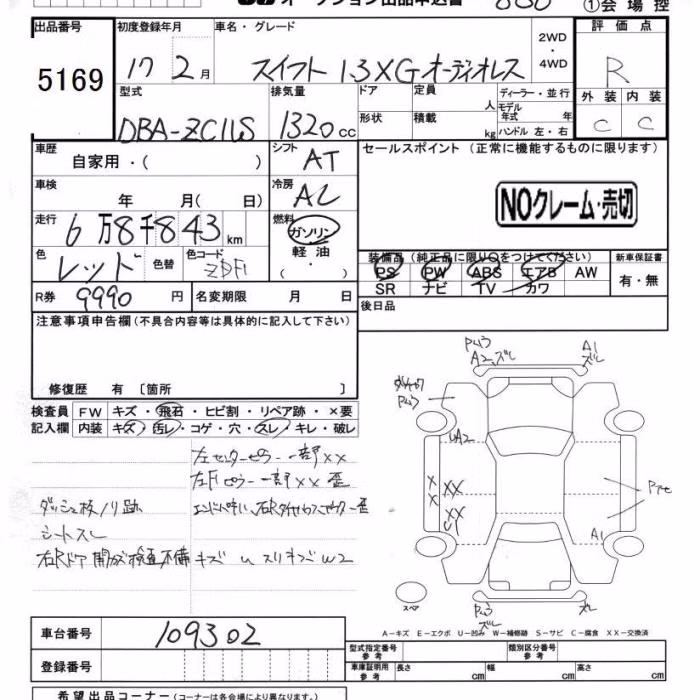 オークション出品申込書
①会場控
出品番号 初度登録年月 車名・グレード 2WD・4WD 評価点
5169 17 2月 スイフト 1.3XGオーディオレス R
型式 排気量 ドア 定員 人 ディーラー・並行 外装 内装
DBA-ZC11S 1320cc 形状 積載 kg モデル年式 年 ハンドル 左・右 C C
車歴 シフト セールスポイント(正常に機能するものに限ります)
自家用・( ) AT
車検 冷房 NOクレーム・売切
年 月( 日) AC
走行 燃料
6万8千843km ガソリン
軽油
・
( )
色 色替 色コード 装備品(純正品に限り○をつけてください) 新車保証書
レッド ZDF1 PS PW ABS エアB AW 有・無
R券 9990円 名変期限 月 日 SR ナビ TV カワ
後日品
注意事項申告欄(不具合内容等は具体的に記入して下さい)
修復歴 有 〔箇所 〕
検査員 FW キズ・飛石・ヒビ割・リペア跡・×要
記入欄 内装 キズ・汚レ・コゲ・穴・スレ・キレ・破レ
左センターピラー一部××
左Fピラー一部××歪
ダッシュ板ノリ跡
シートスレ
右Rドア
キズ U スリキズ W2
A2 ズレ
A1
ズレ
UA2
×
×
××
××
A1
スペア
ズレ
A-キズ E-エクボ U-凹み W-補修跡 S-サビ C-腐食 XX-交換済
車台番号 109302
型式指定番号 参考 類別区分番号 参考
登録番号 車庫証明用 参考 長さ cm 幅 cm 高さ cm
希望出品コーナー(各会場により異なります。)